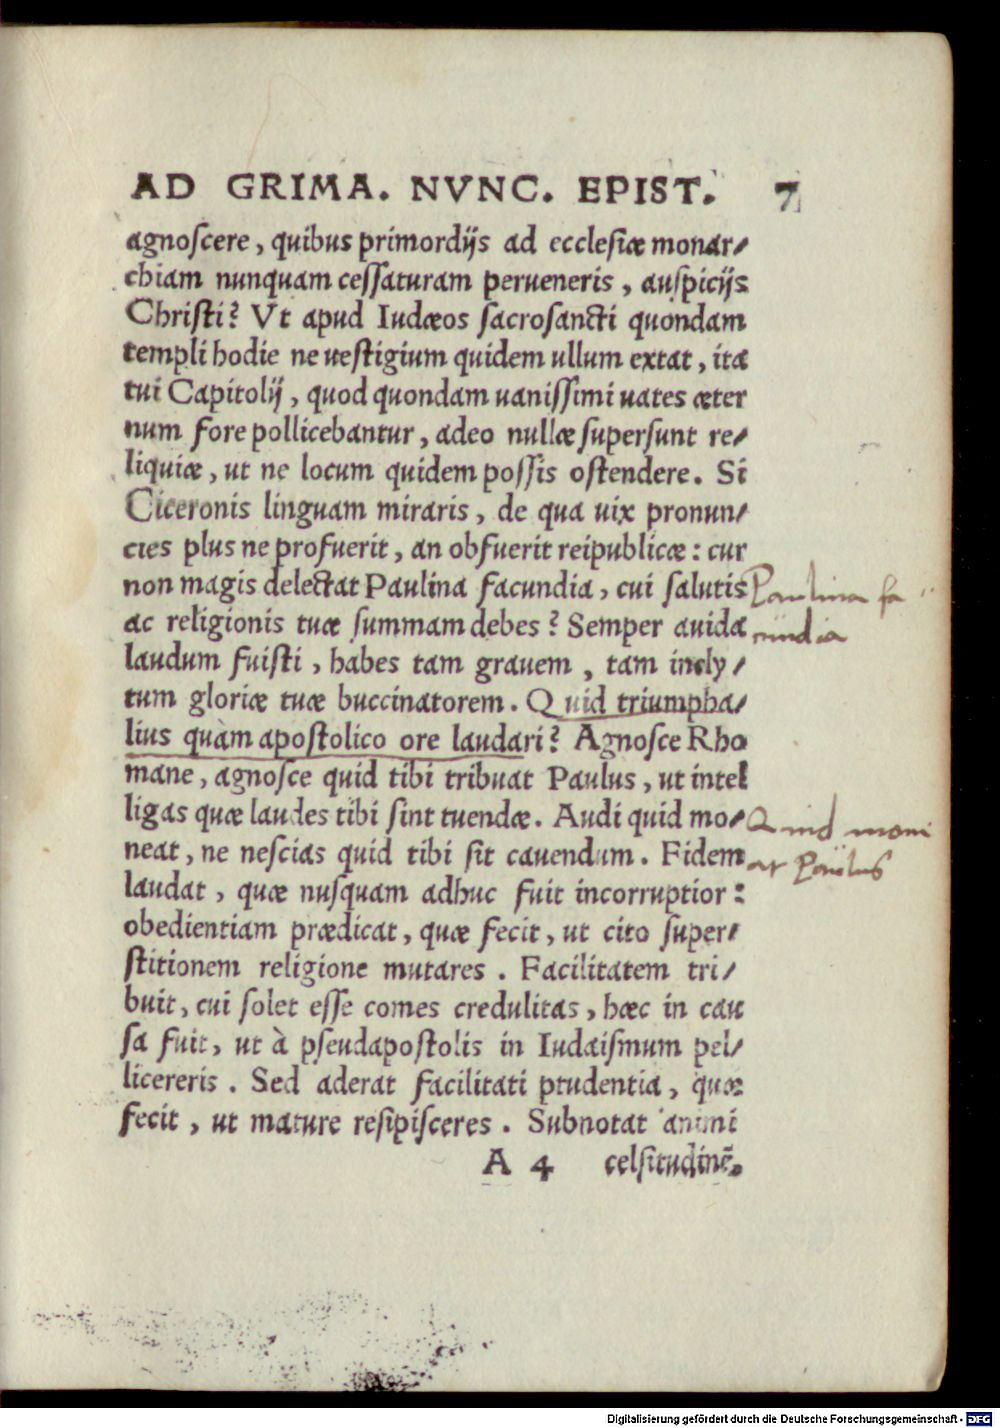 AD GRIMA. NVNC. EPIST. 7
agnoſcere, quibus primordijs ad ecclesiæ monar/
chiam nunquam ceſſaturam perueneris, auſpicijs
Chriſti? Vt apud Iudæos ſacroſancti quondam
templi hodie ne ueſtigium quidem ullum extat, ita
tui Capitolij, quod quondam uaniſſimi uates æter
num fore pollicebantur, adeo nullæ ſuperſunt re/
liquiæ, ut ne locum quidem poſſis oſtendere. Si
Ciceronis linguam miraris, de qua uix pronun/
cies plus ne profuerit, an obfuerit reipublicæ: cur
non magis delectat Paulina facundia, cui ſalutis
Paulina fa
ac religionis tuæ ſummam debes? Semper auida
cundia
laudum fuiſti, habes tam grauem, tam incly/
tum gloriæ tuæ buccinatorem. Quid triumpha/
lius quàm apoſtolico ore laudari? Agnoſce Rho
mane, agnoſce quid tibi tribuat Paulus, ut intel
ligas quæ laudes tibi ſint tuendæ. Audi quid mo/
Quid mone
neat, ne neſcias quid tibi ſit cauendum. Fidem
at Paulus
laudat, quæ nuſquam adhuc fuit incorruptior:
obedientiam prædicat, quæ fecit, ut cito ſuper/
ſtitionem religione mutares. Facilitatem tri/
buit, cui ſolet eſſe comes credulitas, hæc in cau
ſa fuit, ut à pſeudapoſtolis in Iudaiſmum pel/
licereris. Sed aderat facilitati prudentia, quæ
fecit, ut mature reſipiſceres. Subnotat animi
A 4 celſitudinē.
Digitalisierung gefördert durch die Deutsche Forschungsgemeinschaft - DFG